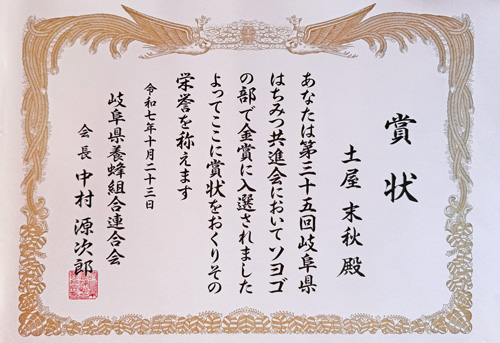 賞状
土屋 末秋 殿
あなたは第三十五回岐阜県
はちみつ共進会においてソヨゴ
の部で金賞に入選されました
よってここに賞状をおくりその
栄誉を称えます
令和七年十月二十三日
岐阜県養蜂組合連合会
会長 中村 源次郎